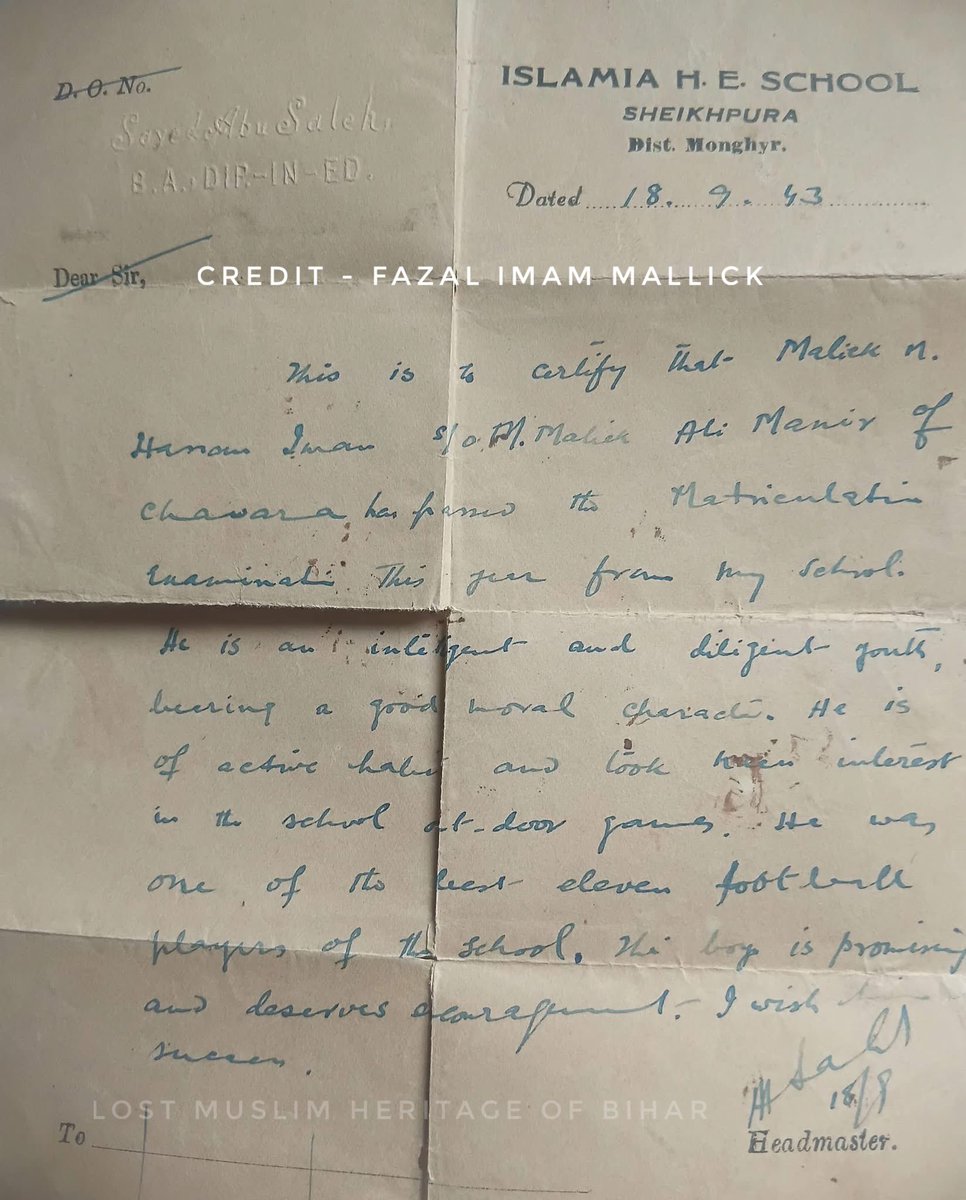 D. O. No.
Sayed Abu Saleh,
B.A., DIP.-IN-ED.
ISLAMIA H. E. SCHOOL
SHEIKHPURA
Dist. Monghyr.
Dated 18. 9. 43
Dear Sir,
CREDIT - FAZAL IMAM MALLICK
This is to certify that Malick M.
Hassan Imam s/o M. Malick Ali Manir of
Chawara has passed the Matriculation
Examination this year from my school.
He is an intelligent and diligent youth,
bearing a good moral character. He is
of active habit and took keen interest
in the school out-door games. He was
one of the best eleven football
players of the school. The boy is promising
and deserves encouragement. I wish him
success.
18/9
LOST MUSLIM HERITAGE OF BIHAR
To
Headmaster.